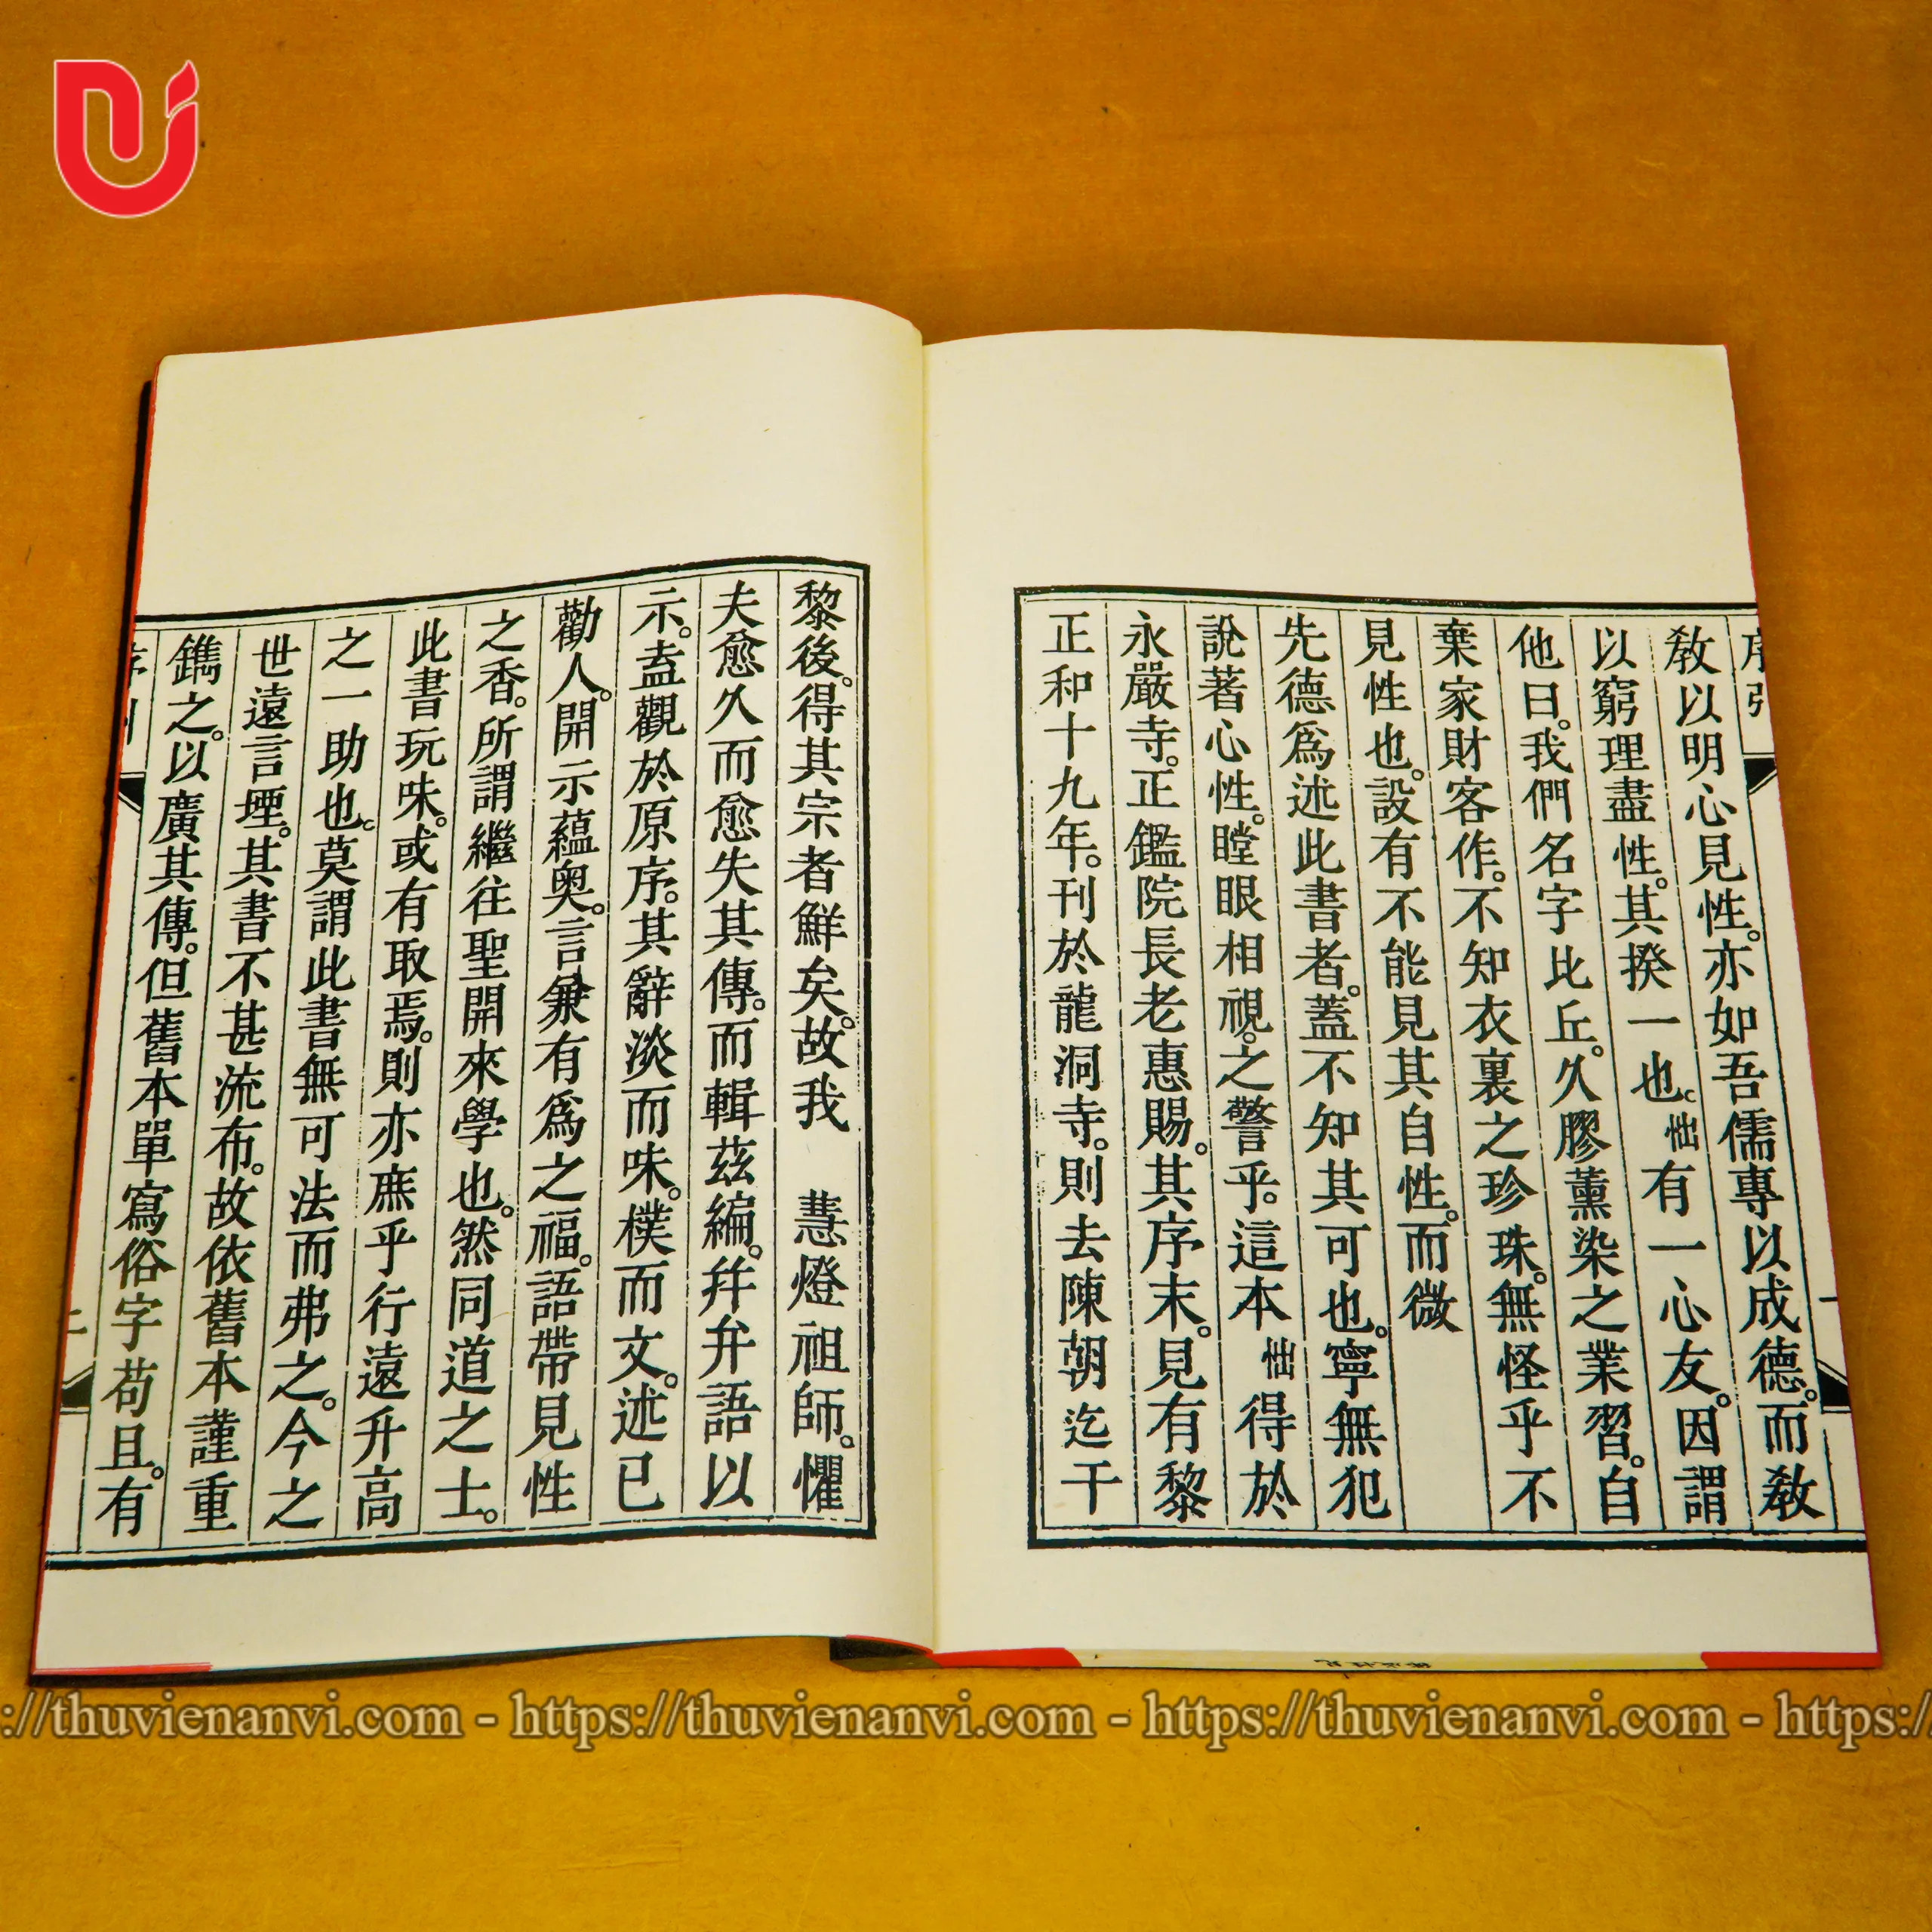 序引
教以明心見性。亦如吾儒專以成德。而教
以窮理盡性。其揆一也。𢗷有一心友。因謂
他曰。我們名字比丘。久膠薰染之業習。自
棄家財客作。不知衣裏之珍珠。無怪乎不
見性也。設有不能見其自性。而微
先德爲述此書者。蓋不知其可也。寧無犯
說著心性。瞠眼相視。之警乎。這本𢗷得於
永嚴寺。正鑑院長老惠賜。其序末。見有黎
正和十九年。刊於龍洞寺。則去陳朝迄干
黎後。得其宗者鮮矣。故我 慧燈祖師。懼
夫愈久而愈失其傳。而輯茲編。并弁語以
示。盍觀於原序。其辭淡而味。樸而文。述已
勸人。開示蘊奥。言兼有爲之福。語帶見性
之香。所謂繼往聖開來學也。然同道之士。
此書玩味。或有取焉。則亦庶乎行遠升高
之一助也。莫謂此書無可法而弗之。今之
世遠言堙。其書不甚流布。故依舊本謹重
鐫之。以廣其傳。但舊本單寫俗字苟且。有
https://thuvienanvi.com - https://thuvienanvi.com - https://thuvienanvi.com - https:/